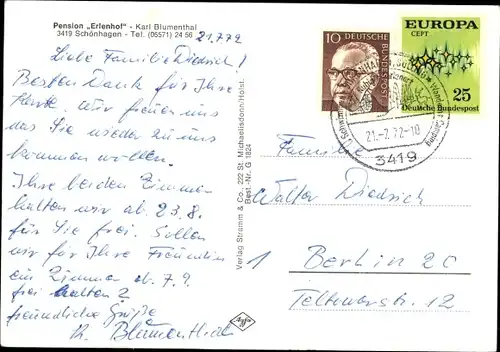 Pension „Erlenhof" - Karl Blumenthal
3419 Schönhagen - Tel. (05571) 24 56
21.7.72
Liebe Familie Diedrich!
Besten Dank für Ihre
Karte. Wir freuen uns
das Sie wieder zu uns
kommen wollen.
Ihre beiden Zimmer
halten wir ab 23.8.
für Sie frei. Sollen
wir für Ihre Freundin
ein Zimmer ab 7.9.
frei halten?
freundliche Grüße
K. Blumenthal
Verlag Stramm & Co., 222 St. Michaelisdonn/Holst.
Best.-Nr. G 1824
10
DEUTSCHE
BUNDESPOST
EUROPA
CEPT
25
Deutsche Bundespost
21.-7.72-10
3419
Familie
Walter Diedrich
1 Berlin 20
Teltowerstr. 12
Agfa